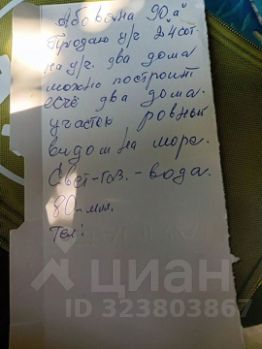 Абовяна 90 "а"
Продаю уч 24 сот.
на уч. два дома
можно построит
есчё два дома.
участек ровный
видом на море.
Свет-газ.-вода.
80-млн.
Тел:
циан
ID 323803867